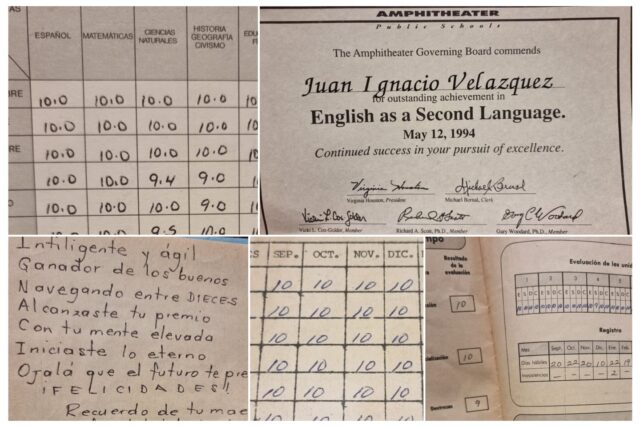 AS
ESPAÑOL MATEMÁTICAS CIENCIAS NATURALES HISTORIA GEOGRAFIA CIVISMO
BRE 10.0 10.0 10.0 10.0
10.0 10.0 10.0 10.0
RE 10.0 10.0 10.0 10.0
10.0 10.0 9.4 9.0
10.0 10.0 10.0 9.0
9.5 10.0
AMPHITHEATER
Public Schools
The Amphitheater Governing Board commends
Juan Ignacio Velazquez
for outstanding achievement in
English as a Second Language.
May 12, 1994
Continued success in your pursuit of excellence.
Virginia Houston, President
Michael Bernal, Clerk
Vicki L. Cox-Golder, Member
Richard A. Scott, Ph.D., Member
Gary Woodard, Ph.D., Member
Intiligente y ágil
Ganador de los buenos
Navegando entre DIECES
Alcanzaste tu premio
Con tu mente elevada
Iniciaste lo eterno
Ojalá que el futuro te pre
¡FELICIDADES!!
Recuerdo de tu mae
SEP. OCT. NOV. DIC.
10 10 10 10
10 10 10 10
10 10 10 10
10 10 10 10
10 10 10 10
mpo
Resultado de la evaluación
10
10
9
Evaluación de las unid
1 2 3 4 5
Registro
Mes Sept. Oct. Nov. Dic. Ene. Feb.
Días hábiles 20 22 20 10 22 19
Inasistencias — — — — 2 —